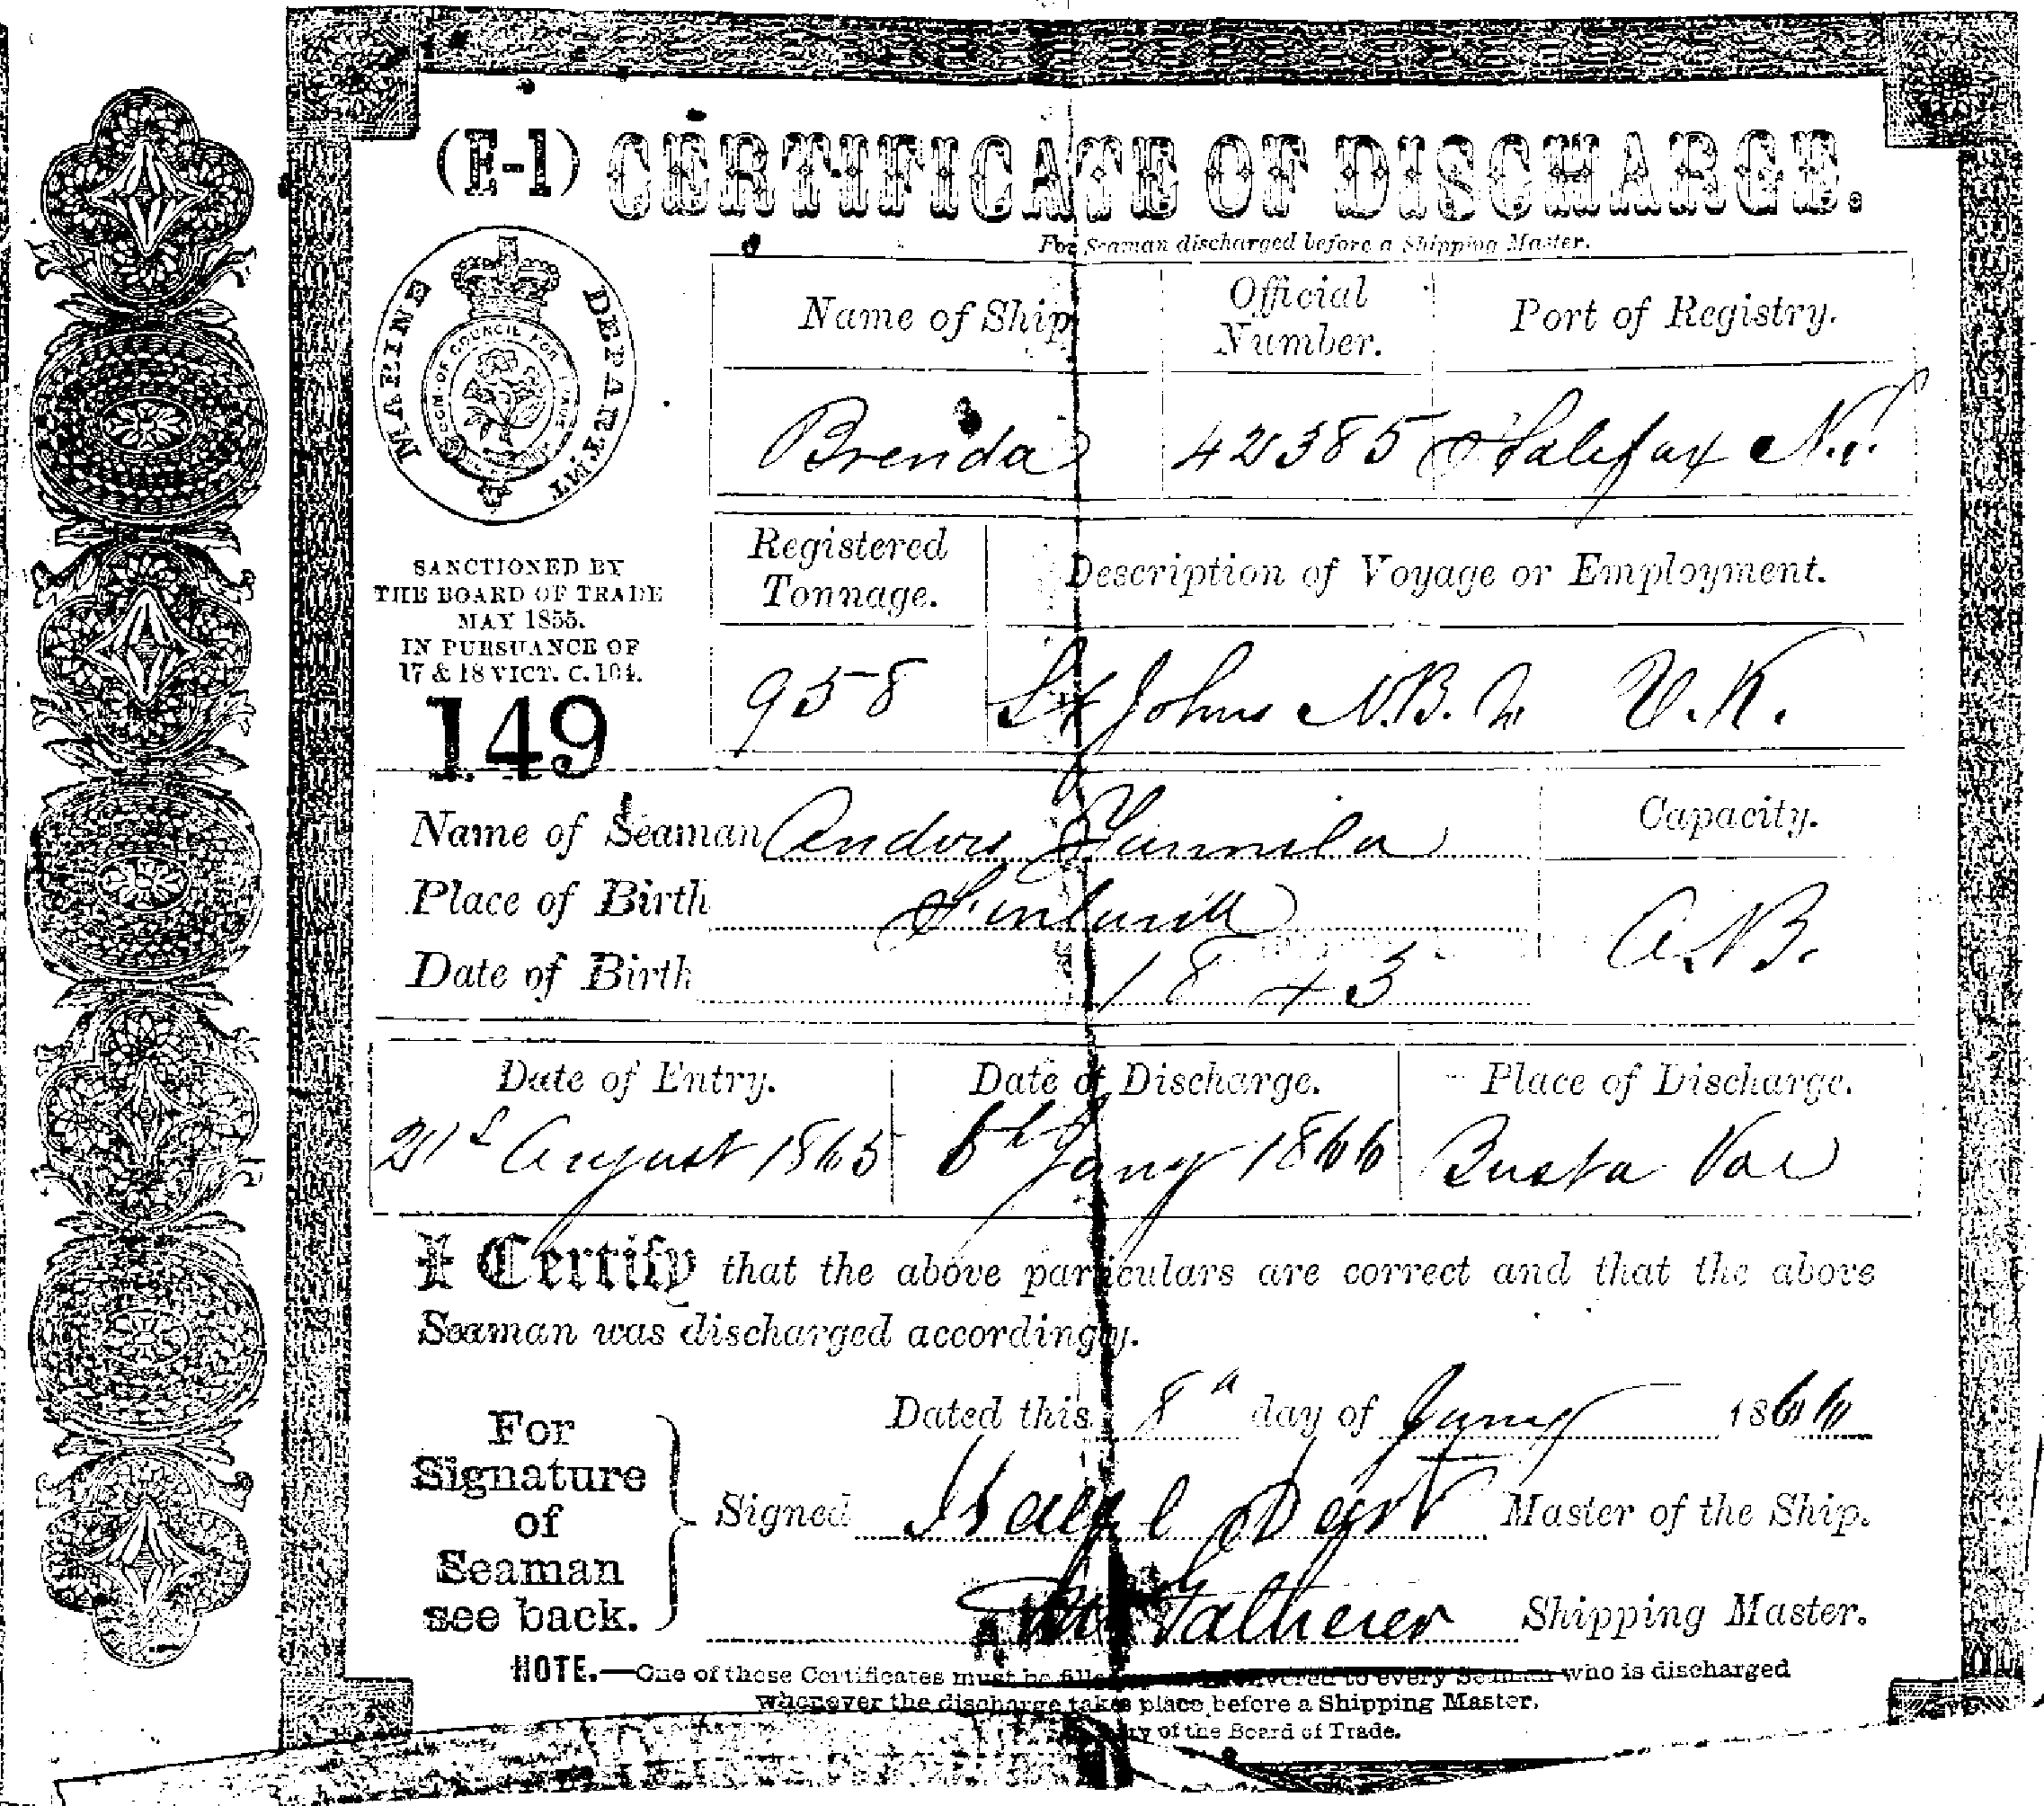 (E-1) CERTIFICATE OF DISCHARGE.
For Seaman discharged before a Shipping Master.
MARINE DEPARTMENT
SANCTIONED BY
THE BOARD OF TRADE
MAY 1855.
IN PURSUANCE OF
17 & 18 VICT. C. 104.
149
Name of Ship
Official Number.
Port of Registry.
Brenda 42385 Halifax N.S.
Registered Tonnage.
Description of Voyage or Employment.
958 St Johns N.B. to U.K.
Name of Seaman Anders
Capacity.
Place of Birth Finland
A.B.
Date of Birth 1843
Date of Entry. Date of Discharge. Place of Discharge.
21st August 1865 8th Jany 1866 Busta Voe
I Certify that the above particulars are correct and that the above
Seaman was discharged accordingly.
Dated this 8th day of Jany 1866
For
Signature
of
Seaman
see back.
Signed Master of the Ship.
Shipping Master.
NOTE.—One of these Certificates must be filled up and delivered to every Seaman who is discharged
whenever the discharge takes place before a Shipping Master.
of the Board of Trade.